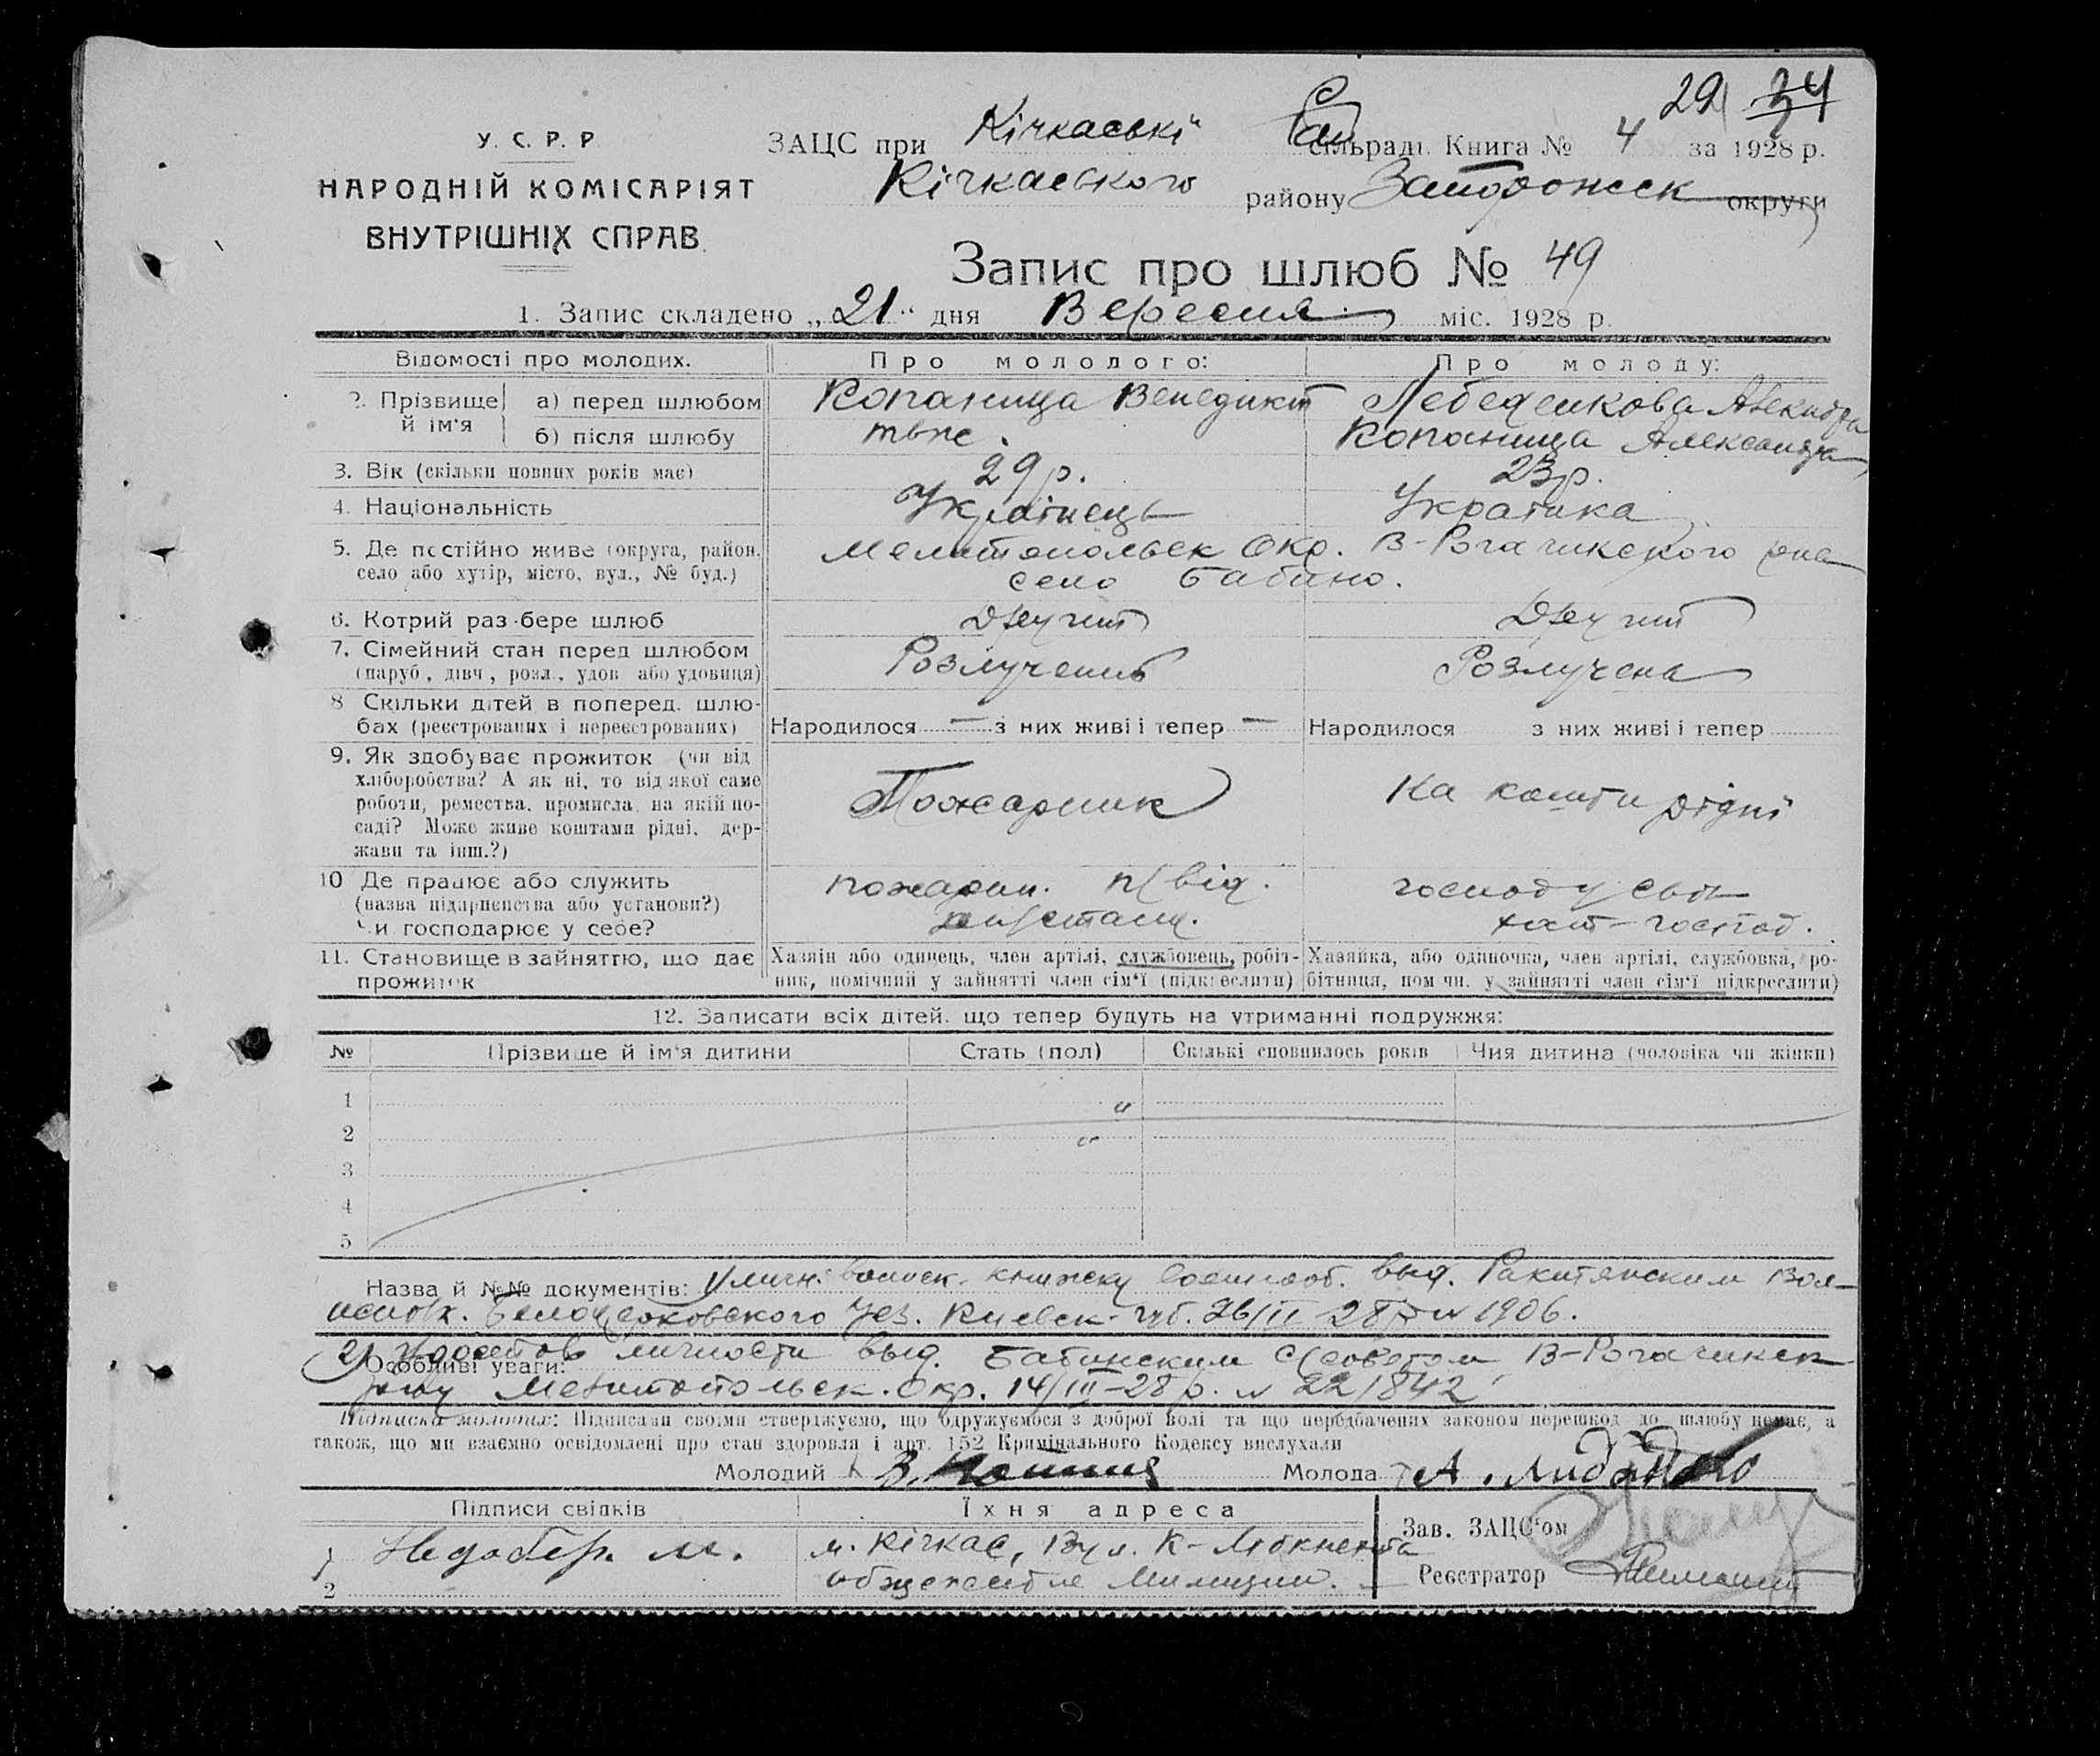 29 34
У. С. Р. Р
НАРОДНІЙ КОМІСАРІЯТ
ВНУТРІШНІХ СПРАВ.
ЗАЦС при Кічкаські сільраді. Книга № 4 за 1928 р.
Кічкаського району Запорожск округи
Запис про шлюб № 49
1. Запис складено „21“ дня Вересня міс. 1928 р.
Відомості про молодих. Про молодого: Про молоду:
2. Прізвище й ім'я а) перед шлюбом Копаница Венедикт Лебеденкова
б) після шлюбу теж. Копаница Александра
3. Вік (скільки повних років має) 29 р. 23 р.
4. Національність Українець Українка
5. Де постійно живе (округа, район, Мелитопольск Окр. В-Рогачикского
село або хутір, місто, вул., № буд.) село Бабино.
6. Котрий раз бере шлюб Другий Другий
7. Сімейний стан перед шлюбом Розлучений Розлучена
(паруб., дівч., розл., удов. або удовиця)
8 Скільки дітей в поперед. шлю-
бах (реєстрованих і нереєстрованих) Народилося — з них живі і тепер — Народилося з них живі і тепер
9. Як здобуває прожиток (чи від
хліборобства? А як ні, то від якої саме Пожарник На кошти рідні
роботи, ремества, промисла, на якій по-
саді? Може живе коштами рідні, дер-
жави та інш.?)
10 Де працює або служить пожарн.
(назва підприємства або установи?)
Чи господарює у себе? господ.
11. Становище в зайняттю, що дає Хазяїн або одинець, член артілі, службовець, робіт- Хазяйка, або одиночка, член артілі, службовка, ро-
прожиток ник, помічний у зайнятті член сім'ї (підкреслити) бітниця, пом чн. у зайнятті член сім'ї підкреслити)
12. Записати всіх дітей, що тепер будуть на утриманні подружжя:
№ Прізвище й ім'я дитини Стать (пол) Скількі сповнилось років Чия дитина (чоловіка чи жінки)
1 "
2 "
3
4
5
Назва й №№ документів: 1/ личн. воинск. книжку выд. Ракитянским Вол-
Белоцерковского Уез. Киевск. губ. 1906.
2) личности выд. Бабинским С/советом В-Рогачикск
Особливі уваги:
Мелитопольск. Окр. 14/III-28 р. № 22/842
Підписи молодих: Підписами своїми стверджуємо, що одружуємося з доброї волі та що передбачених законом перешкод до шлюбу немає, а
також, що ми взаємно освідомлені про стан здоровля і арт. 152 Кримінального Кодексу вислухали
Молодий В. Молода А.
Підписи свідків Їхня адреса Зав. ЗАЦС'ом
1 м. Кічкас, Вул. К-Либкнехта
2 общежитие Милиции. Реєстратор